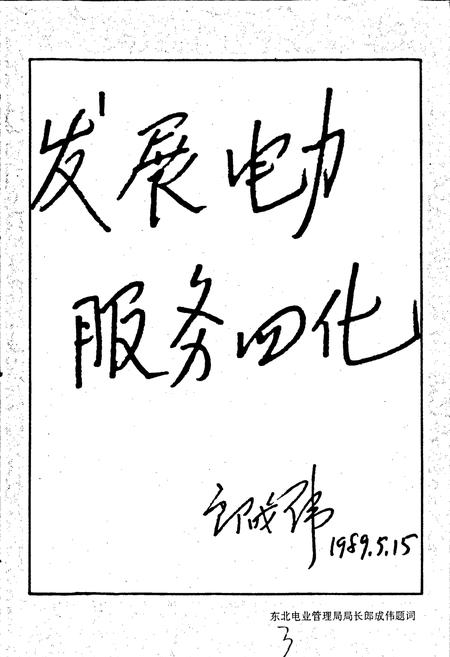 发展电力
服务四化
郎成伟
1989.5.15
东北电业管理局局长郎成伟题词
3